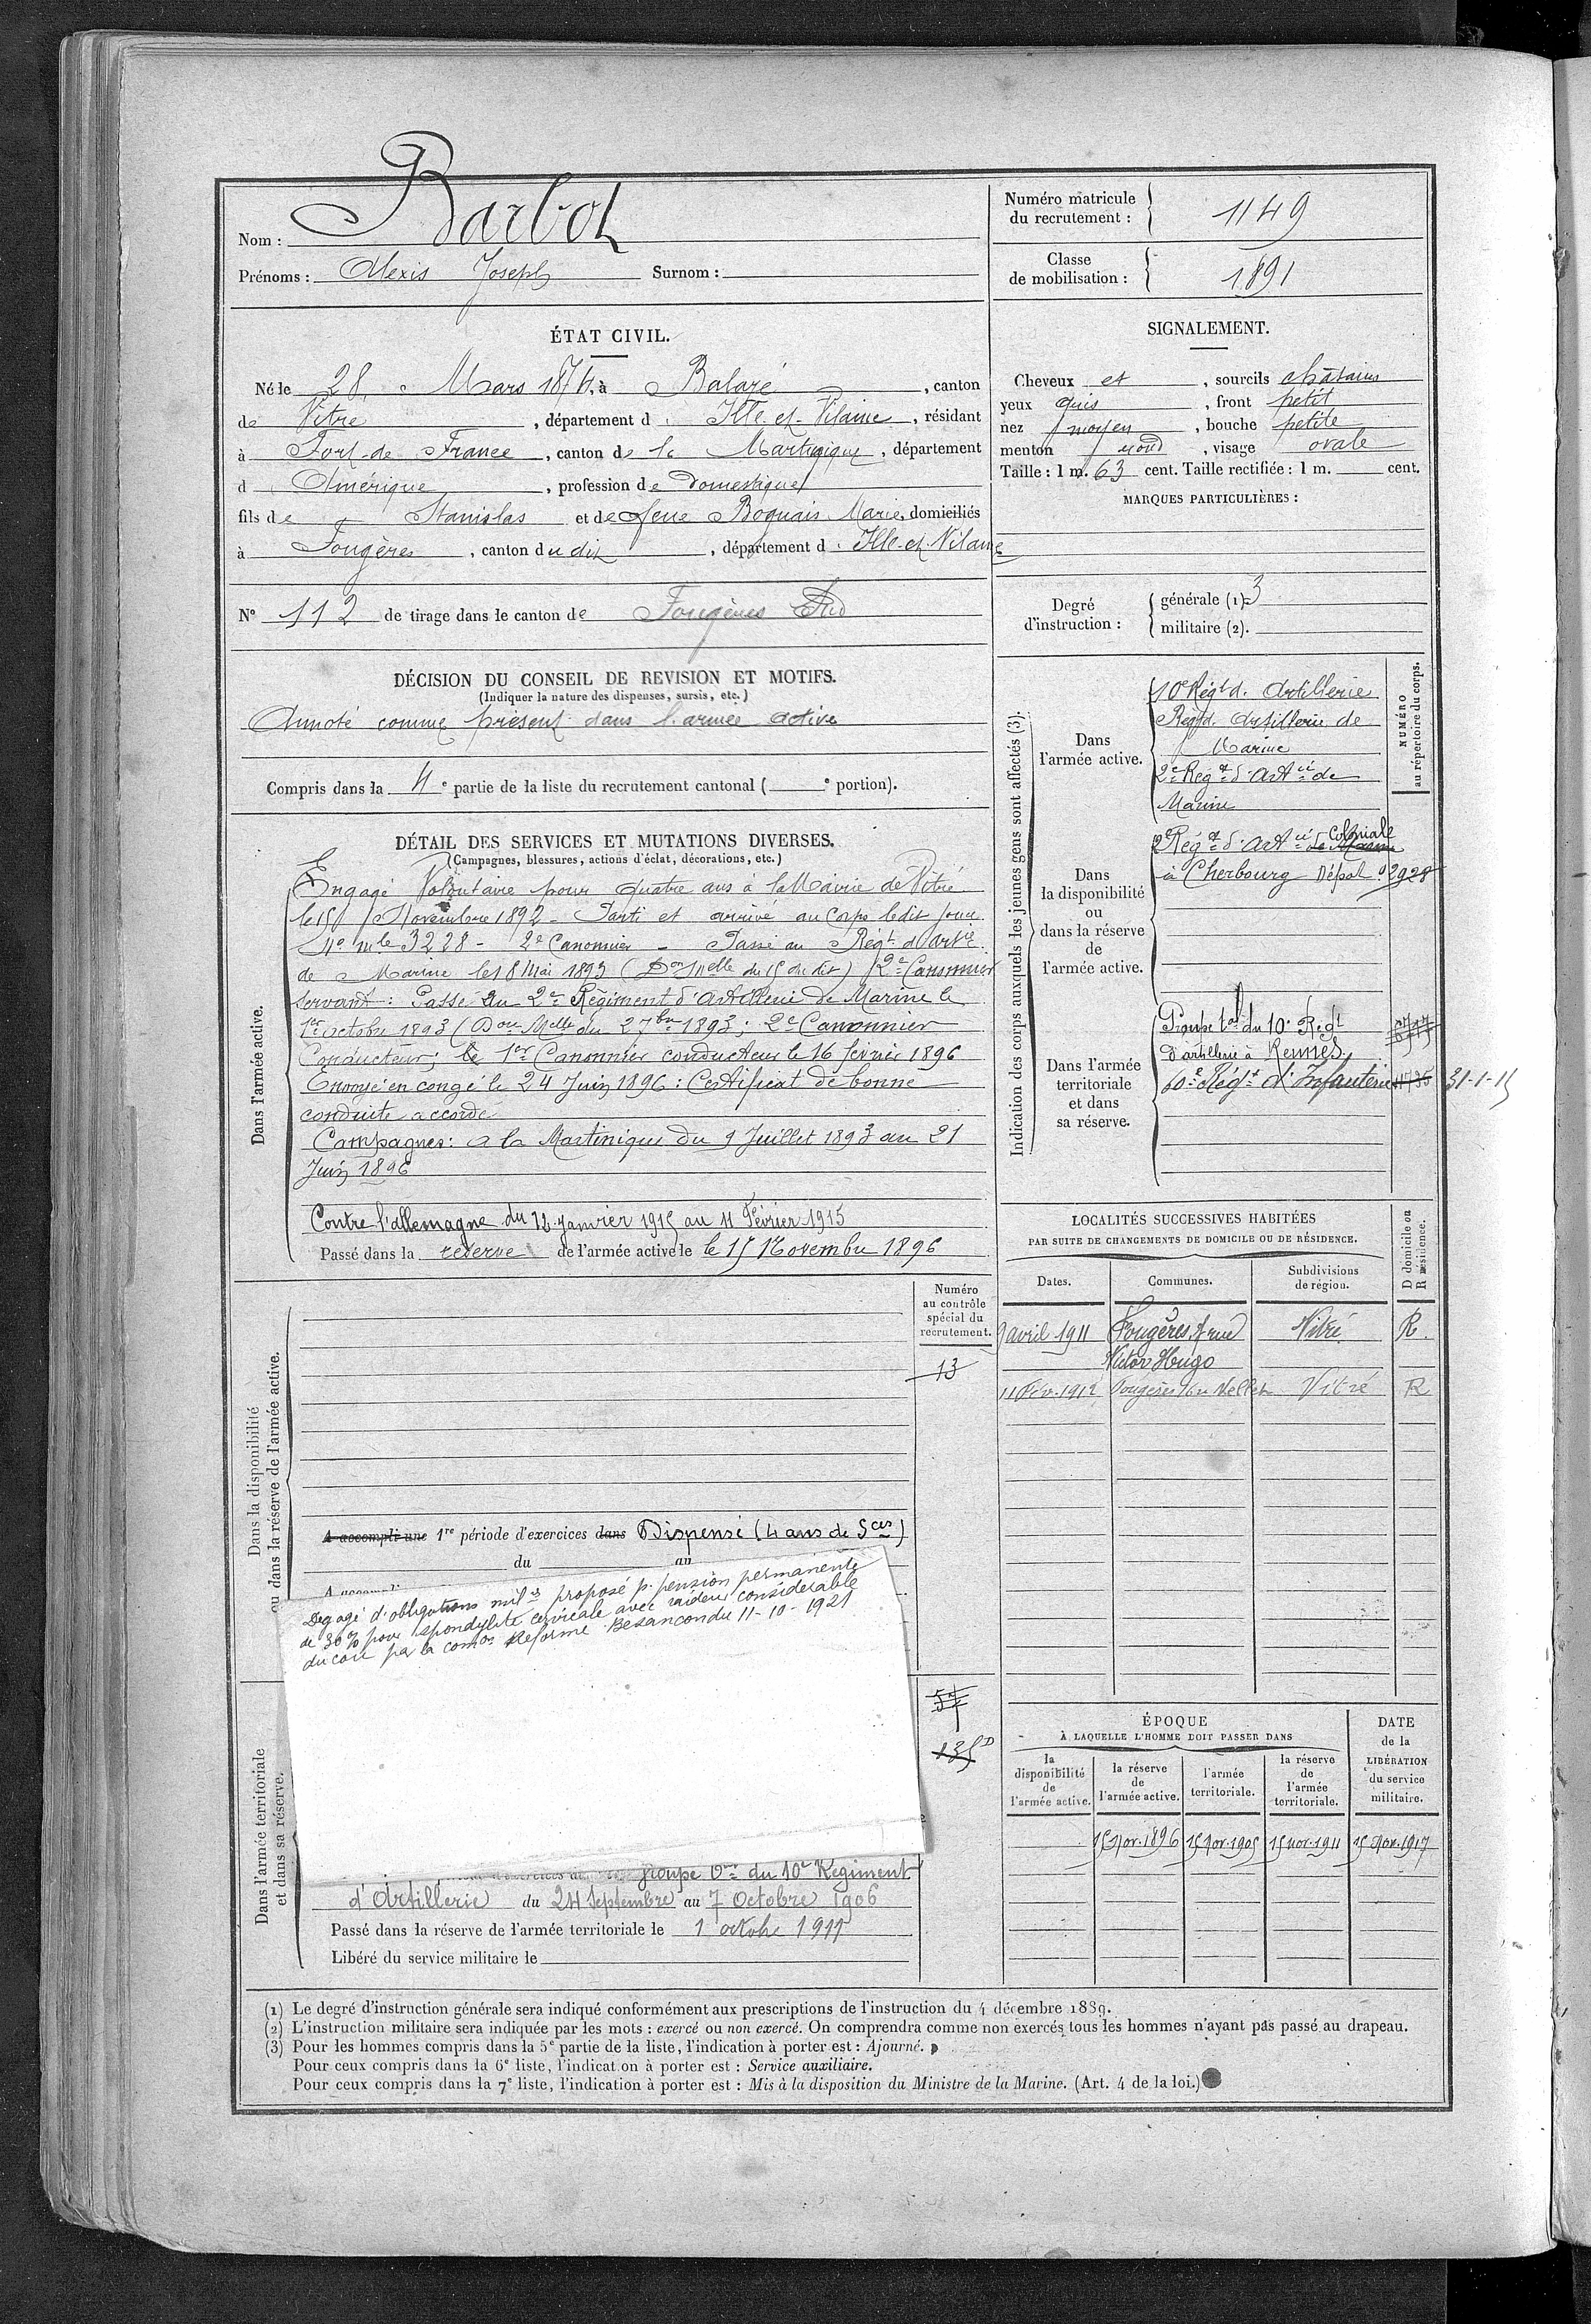 Nom : Barbot
Prénoms : Alexis Joseph Surnom :
Numéro matricule
du recrutement : 1149
Classe
de mobilisation : 1891
ÉTAT CIVIL.
Né le 28 Mars 1871, à Balazé, canton
de Vitré, département d'Ille-et-Vilaine, résidant
à Fort-de France, canton de la Martinique, département
d'Amérique, profession de domestique
fils de Stanislas et de feue Boguais Marie, domiciliés
à Fougères, canton du dit, département d'Ille-et-Vilaine
N° 112 de tirage dans le canton de Fougères Sud
SIGNALEMENT.
Cheveux et, sourcils châtains
yeux gris, front petit
nez moyen, bouche petite
menton rond, visage ovale
Taille : 1 m. 63 cent. Taille rectifiée : 1 m. cent.
MARQUES PARTICULIÈRES :
Degré
d'instruction :
générale (1) 3
militaire (2).
DÉCISION DU CONSEIL DE REVISION ET MOTIFS.
(Indiquer la nature des dispenses, sursis, etc.)
Annoté comme présent dans l'armée active
Compris dans la 4e partie de la liste du recrutement cantonal ( e portion).
DÉTAIL DES SERVICES ET MUTATIONS DIVERSES.
(Campagnes, blessures, actions d'éclat, décorations, etc.)
Dans l'armée active.
Engagé Volontaire pour quatre ans à la Mairie de Vitré
le 15 Novembre 1892 - Parti et arrivé au Corps ledit jour
No mle 3228 - 2e Canonnier - Passé au Régt d'artie
de Marine le 18 Mai 1893 (Don Mlle du 15 du dit) 2e Canonnier
servant : Passé au 2e Régiment d'artillerie de Marine le
1er octobre 1893 (Don Melle du 27 bre 1893 ; 2e Canonnier
Conducteur ; le 1er Canonnier conducteur le 16 février 1896
Envoyé en congé le 24 Juin 1896 : Certificat de bonne
conduite accordé
Campagnes : à la Martinique du 9 Juillet 1893 au 21
Juin 1896
Contre l'allemagne du 12 janvier 1915 au 11 Février 1915
Passé dans la réserve de l'armée active le le 15 Novembre 1896
Indication des corps auxquels les jeunes gens sont affectés (3).
NUMÉRO
au répertoire du corps.
Dans
l'armée active.
10e Régt d'Artillerie
Régt d'Artillerie de
Marine
2e Régt d'Artie de
Marine
Dans
la disponibilité
ou
dans la réserve
de
l'armée active.
2e Régt d'Artie de Marine Coloniale
à Cherbourg Dépot 02928
Dans l'armée
territoriale
et dans
sa réserve.
Groupe tal du 10e Régt
d'artillerie à Rennes
60e Régt d'Infanterie 31-1-15
LOCALITÉS SUCCESSIVES HABITÉES
PAR SUITE DE CHANGEMENTS DE DOMICILE OU DE RÉSIDENCE.
Dates. Communes. Subdivisions
de région. D domicile ou
R résidence.
9 avril 1911 Fougères, rue Vitré R.
Victor Hugo
11 Fév. 1912 Fougères Vitré R
Dans la disponibilité
ou dans la réserve de l'armée active.
Numéro
au contrôle
spécial du
recrutement.
13
A accompli une 1re période d'exercices dans Dispensé (4 ans de Sces)
du au
Dégagé d'obligations miles proposé p. pension permanente
de 30% pour spondylite cervicale avec raideur considérable
du cou par la comon Réforme Besançon du 11-10-1921
Dans l'armée territoriale
et dans sa réserve.
57
135 D
groupe tal du 10e Régiment
d'Artillerie du 24 Septembre au 7 Octobre 1906
Passé dans la réserve de l'armée territoriale le 1 octobre 1911
Libéré du service militaire le
ÉPOQUE
À LAQUELLE L'HOMME DOIT PASSER DANS
DATE
de la
LIBÉRATION
du service
militaire.
la
disponibilité
de
l'armée active.
la réserve
de
l'armée active.
l'armée
territoriale.
la réserve
de
l'armée
territoriale.
15 Nov. 1896 15 Nov. 1905 15 nov. 1911 15 Nov. 1917
(1) Le degré d'instruction générale sera indiqué conformément aux prescriptions de l'instruction du 4 décembre 1889.
(2) L'instruction militaire sera indiquée par les mots : exercé ou non exercé. On comprendra comme non exercés tous les hommes n'ayant pas passé au drapeau.
(3) Pour les hommes compris dans la 5e partie de la liste, l'indication à porter est : Ajourné.
Pour ceux compris dans la 6e liste, l'indication à porter est : Service auxiliaire.
Pour ceux compris dans la 7e liste, l'indication à porter est : Mis à la disposition du Ministre de la Marine. (Art. 4 de la loi.)